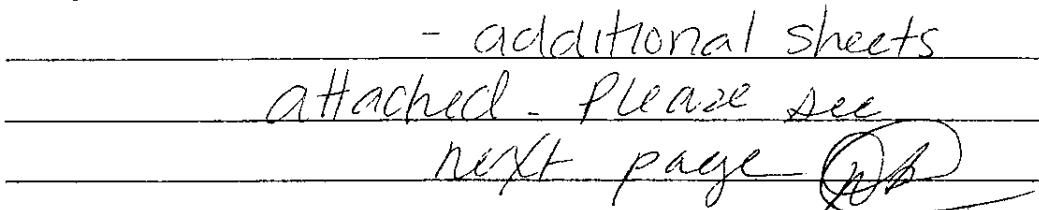 - additional sheets
attached - Please see
next page